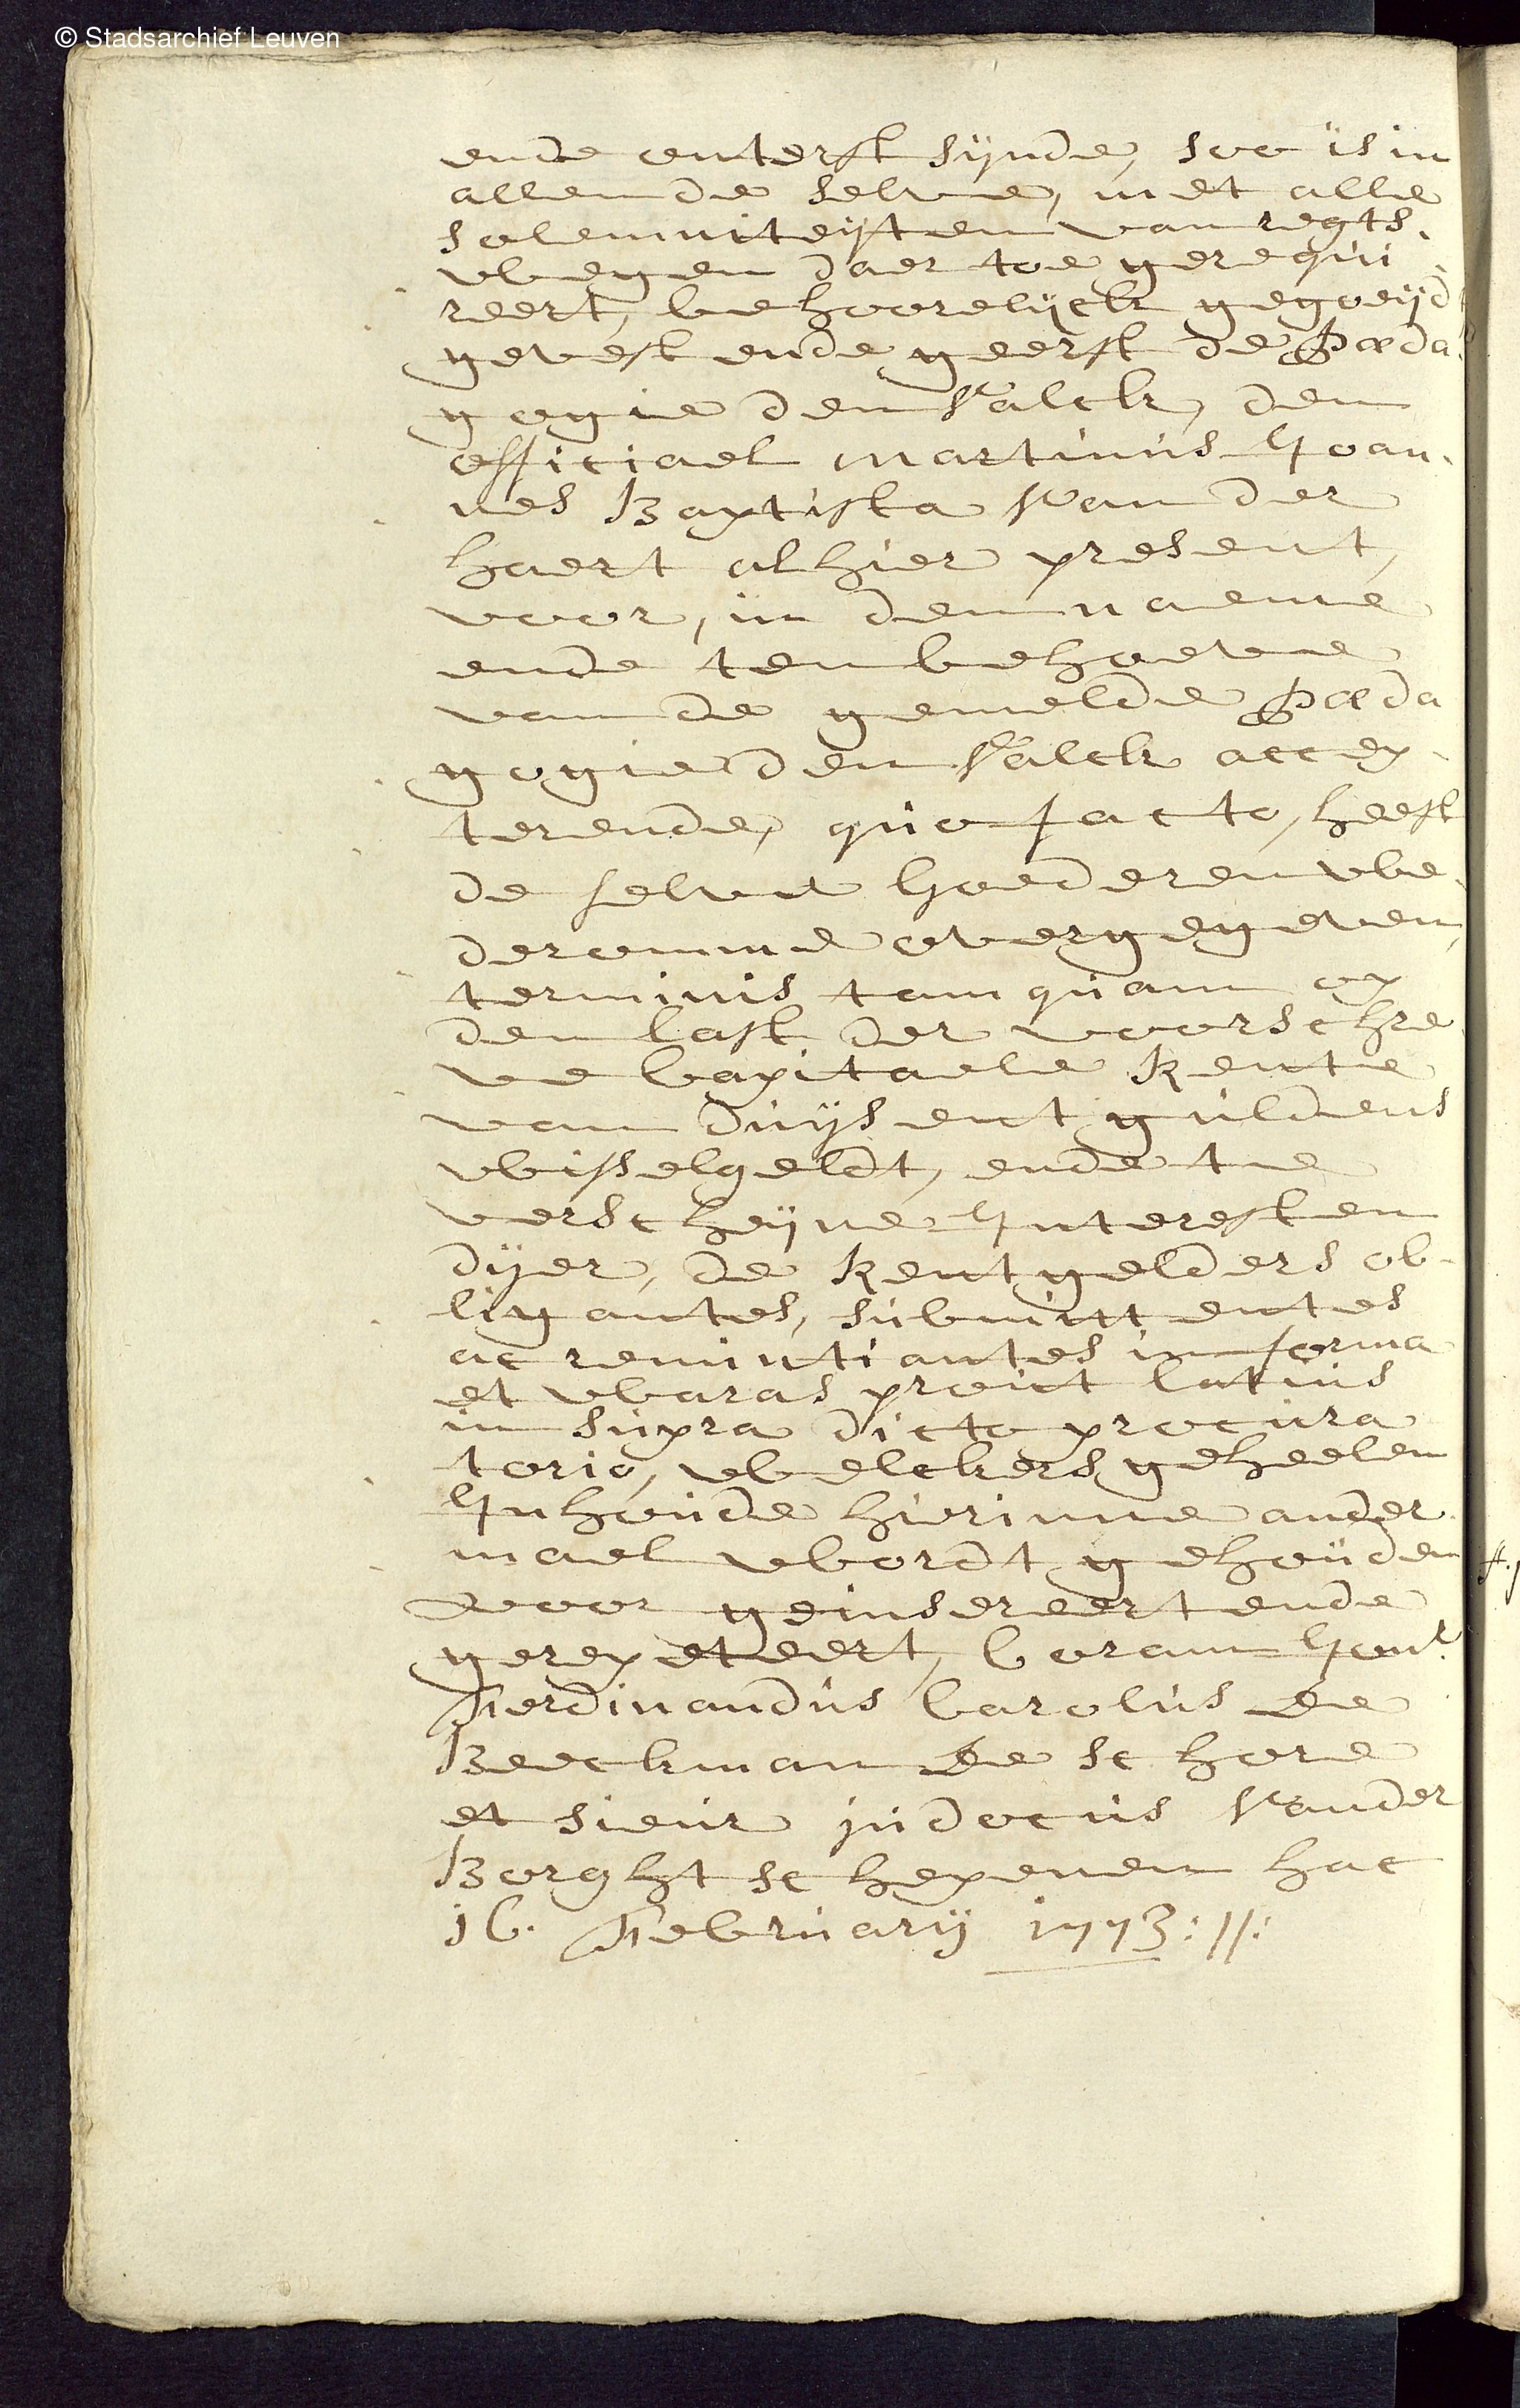 © Stadsarchief Leuven
ende onterft sijnde, soo is in
allen de selve, met alle
solemniteijten van regts.
wegen daer toe gerequi.
reert, behoorelijck gegoeijd
gevest ende geerft de Pæda.
gogie den Valck, den
officiael Martinus Joan.
nes Baptista Van der
haert alhier present,
voor, in den naeme
ende ten behoeve
van de gemelde Pæda
gogie den Valck accep.
terende, quo facto, heeft
de selve Goederen we.
deromme overgegeven,
terminis tamquam op
den last der voorschre
ve Capitaele Rente
van duijsent guldens
wisselgeldt, ende te
verscheijne Interesten
dijer, de Rentgelders ob.
ligantes, submittentes
ac renuntiantes in forma
et waras prout latius
in supra dicto procura
torio, welckers geheelen
Inhoude hierinne ander.
mael wordt gehouden
voor geinsereert ende
gerepeteert, Coram Jonr.
Ferdinandus Carolus De
Beeckman De Schore
et sieur judocus Vander
Borght schepenen hac
16. February 1773://: